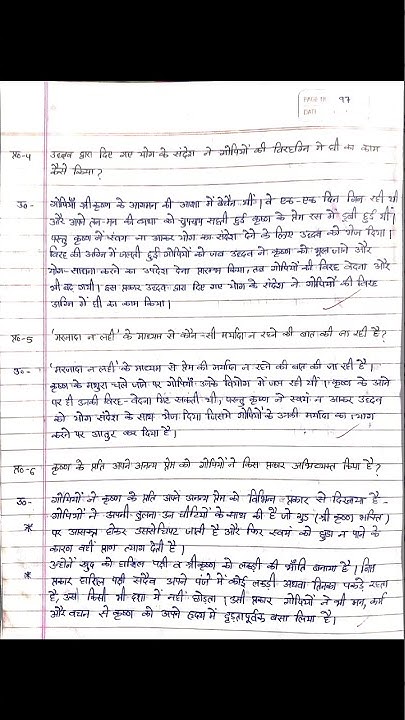 PAGE No 97
DATE
प्र०-4 उद्धव द्वारा दिए गए योग के संदेश ने गोपियों की विरहाग्नि में घी का काम
कैसे किया?
उ०- गोपियाँ श्री कृष्ण के आगमन की आशा में बेचैन थीं। वे एक-एक दिन गिन रही थी
और अपने तन-मन की व्यथा को चुपचाप सहती हुई कृष्ण के प्रेम रस में डूबी हुई थीं।
परन्तु कृष्ण ने स्वयं ना आकर योग का संदेश देने के लिए उद्धव को भेज दिया।
विरह की अग्नि में जलती हुई गोपियों को जब उद्धव ने कृष्ण को भूल जाने और
योग-साधना करने का उपदेश देना प्रारम्भ किया, तब गोपियों की विरह वेदना और
भी बढ़ गयी। इस प्रकार उद्धव द्वारा दिए गए योग के संदेश ने गोपियों की विरह
अग्नि में घी का काम किया।
प्र०-5 'मरजादा न लही' के माध्यम से कौन-सी मर्यादा न रहने की बात की जा रही है?
उ०- 'मरजादा न लही' के माध्यम से प्रेम की मर्यादा न रहने की बात की जा रही है।
कृष्ण के मथुरा चले जाने पर गोपियाँ उनके वियोग में जल रही थीं। कृष्ण के आने
पर ही उनकी विरह-वेदना मिट सकती थी, परन्तु कृष्ण ने स्वयं न आकर उद्धव
को योग संदेश के साथ भेज दिया जिसने गोपियों के उनकी मर्यादा का त्याग
करने पर आतुर कर दिया है।
प्र०-6 कृष्ण के प्रति अपने अनन्य प्रेम को गोपियों ने किस प्रकार अभिव्यक्त किया है?
उ०- गोपियों ने कृष्ण के प्रति अपने अनन्य प्रेम को विभिन्न प्रकार से दिखाया है -
* गोपियों ने अपनी तुलना उन चींटियों के साथ की है जो गुड़ (श्री कृष्ण भक्ति)
पर आसक्त होकर उससे चिपट जाती है और फिर स्वयं को छुड़ा न पाने के
कारण वहीं प्राण त्याग देती है।
* उन्होंने खुद को हारिल पक्षी व श्रीकृष्ण को लकड़ी की भाँति बताया है। जिस
प्रकार हारिल पक्षी सदैव अपने पंजे में कोई लकड़ी अथवा तिनका पकड़े रहता
है, उसे किसी भी दशा में नहीं छोड़ता। उसी प्रकार गोपियों ने भी मन, कर्म
और वचन से कृष्ण को अपने ह्रदय में दृढ़तापूर्वक बसा लिया है।